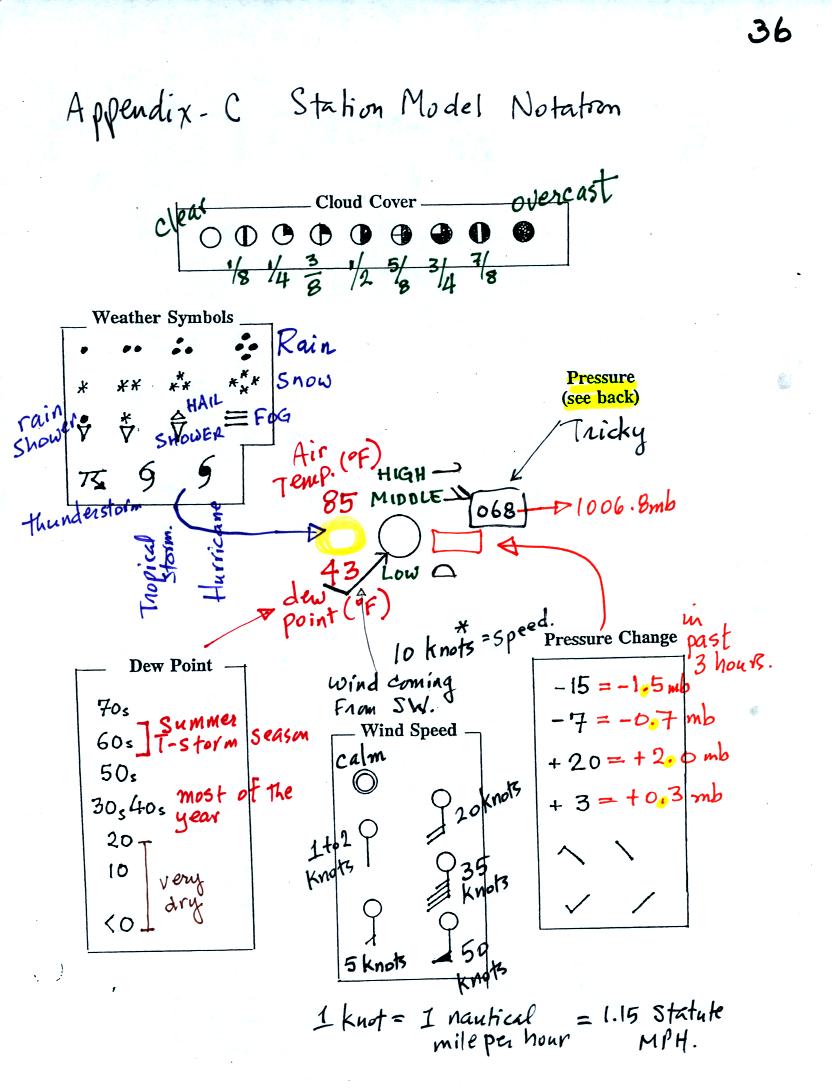 36
Appendix-C Station Model Notation
Cloud Cover
clear
overcast
1/8 1/4 3/8 1/2 5/8 3/4 7/8
Weather Symbols
Rain
Snow
rain shower
HAIL
SHOWER
FOG
thunderstorm
Tropical storm.
Hurricane
Pressure
(see back)
Tricky
Air
Temp. (°F)
HIGH
85
MIDDLE
068
1006.8mb
43
LOW
dew
point (°F)
10 knots* = speed.
wind coming
From SW.
Dew Point
70s
60s
Summer
T-storm season
50s
30s,40s most of the
year
20
10
<0
very
dry
Wind Speed
calm
1 to 2
knots
20 knots
35
knots
5 knots
50
knots
Pressure Change
in
past
3 hours.
-15 = -1.5 mb
-7 = -0.7 mb
+20 = +2.0 mb
+3 = +0.3 mb
1 knot = 1 nautical
mile per hour
= 1.15 Statute
MPH.